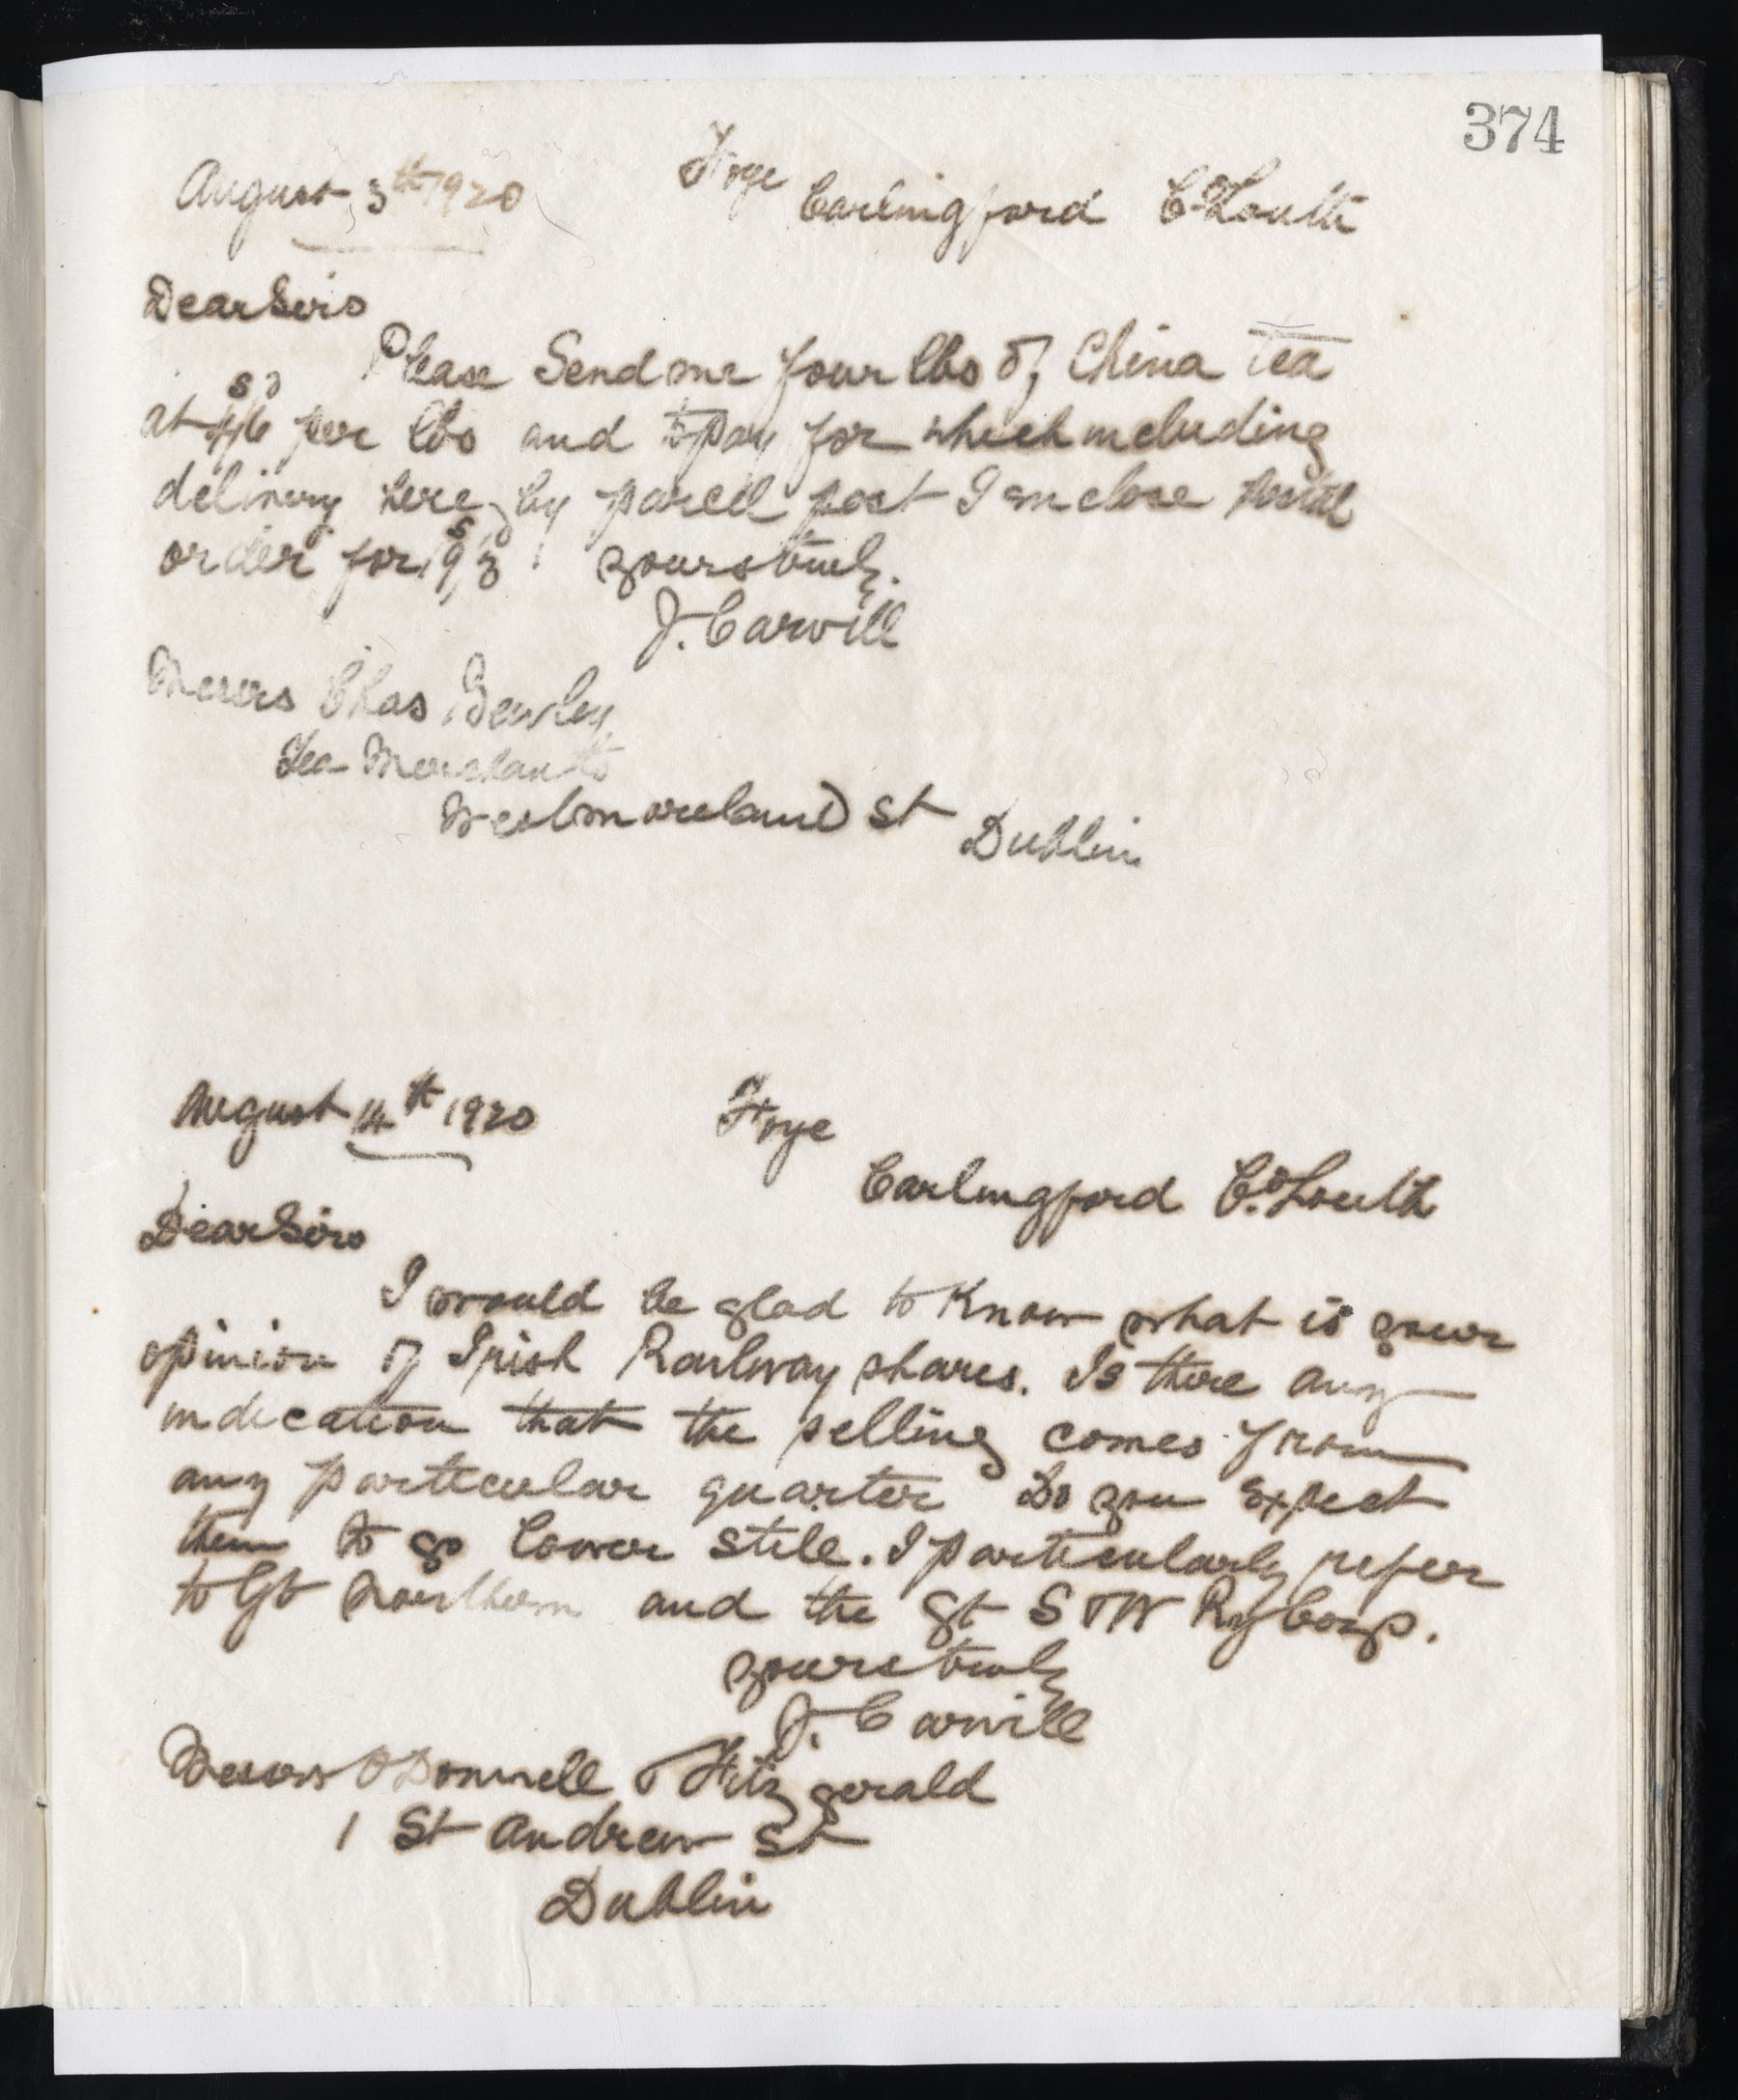 374
August 3th 1920 Foye Carlingford Co Louth
Dear Sirs
Please Send me four lbs of China Tea
s d
at 4/6 per lbs and to pay for which including
delivery here by parcel post I enclose postal
order for 19s/3 yours truly.
J. Carvill
Messrs Chas Bewley
Tea Merchants
Westmoreland St Dublin
August 14th 1920 Foye
Carlingford Co. Louth
Dear Sirs
I would be glad to Know what is your
opinion of Irish Railway shares. Is there any
indication that the selling comes from
any particular quarter Do you Expect
them to go lower still. I particularly refer
to Gt Northern and the gt S & W Ry Coys.
yours truly
J. Carvill
Messrs O'Donnell & Fitzgerald
1 St Andrew St
Dublin